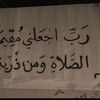 رَبِّ اجْعَلْنِي مُقِيمَ
الصَّلَاةِ وَمِنْ ذُرِّيَّ